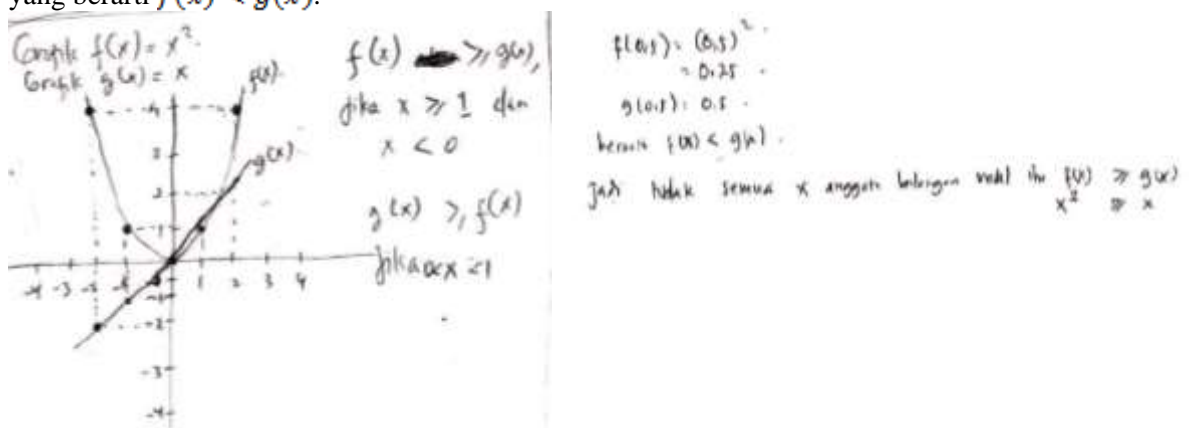 yang berarti f(x) < g(x).
Grafik f(x) = x².
Grafik g(x) = x
f(x).
g(x).
4
3
2
1
-4 -3 -2 -1 1 2 3 4
-1
-2
-3
-4
f(x) ≥ g(x),
jika x ≥ 1 dan
x < 0
g(x) ≥ f(x)
jika 0<x<1
f(0,5) = (0,5)²
= 0,25.
g(0,5) = 0,5.
berarti f(x) < g(x).
jadi tidak semua x anggota bilangan real itu f(x) ≥ g(x)
x² ≥ x